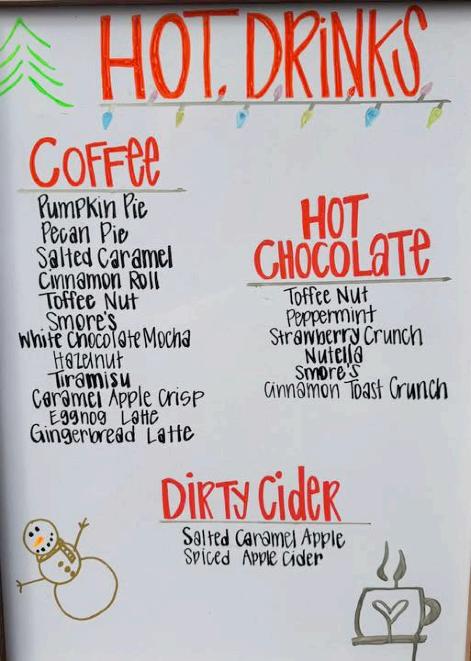 HOT DRINKS
COFFEE
Pumpkin Pie
Pecan Pie
Salted Caramel
Cinnamon Roll
Toffee Nut
Smore's
White Chocolate Mocha
Hazelnut
Tiramisu
Caramel Apple Crisp
Eggnog Latte
Gingerbread Latte
HOT
CHOCOLATE
Toffee Nut
Peppermint
Strawberry Crunch
Nutella
Smore's
Cinnamon Toast Crunch
DIRTY CIDER
Salted Caramel Apple
Spiced Apple Cider